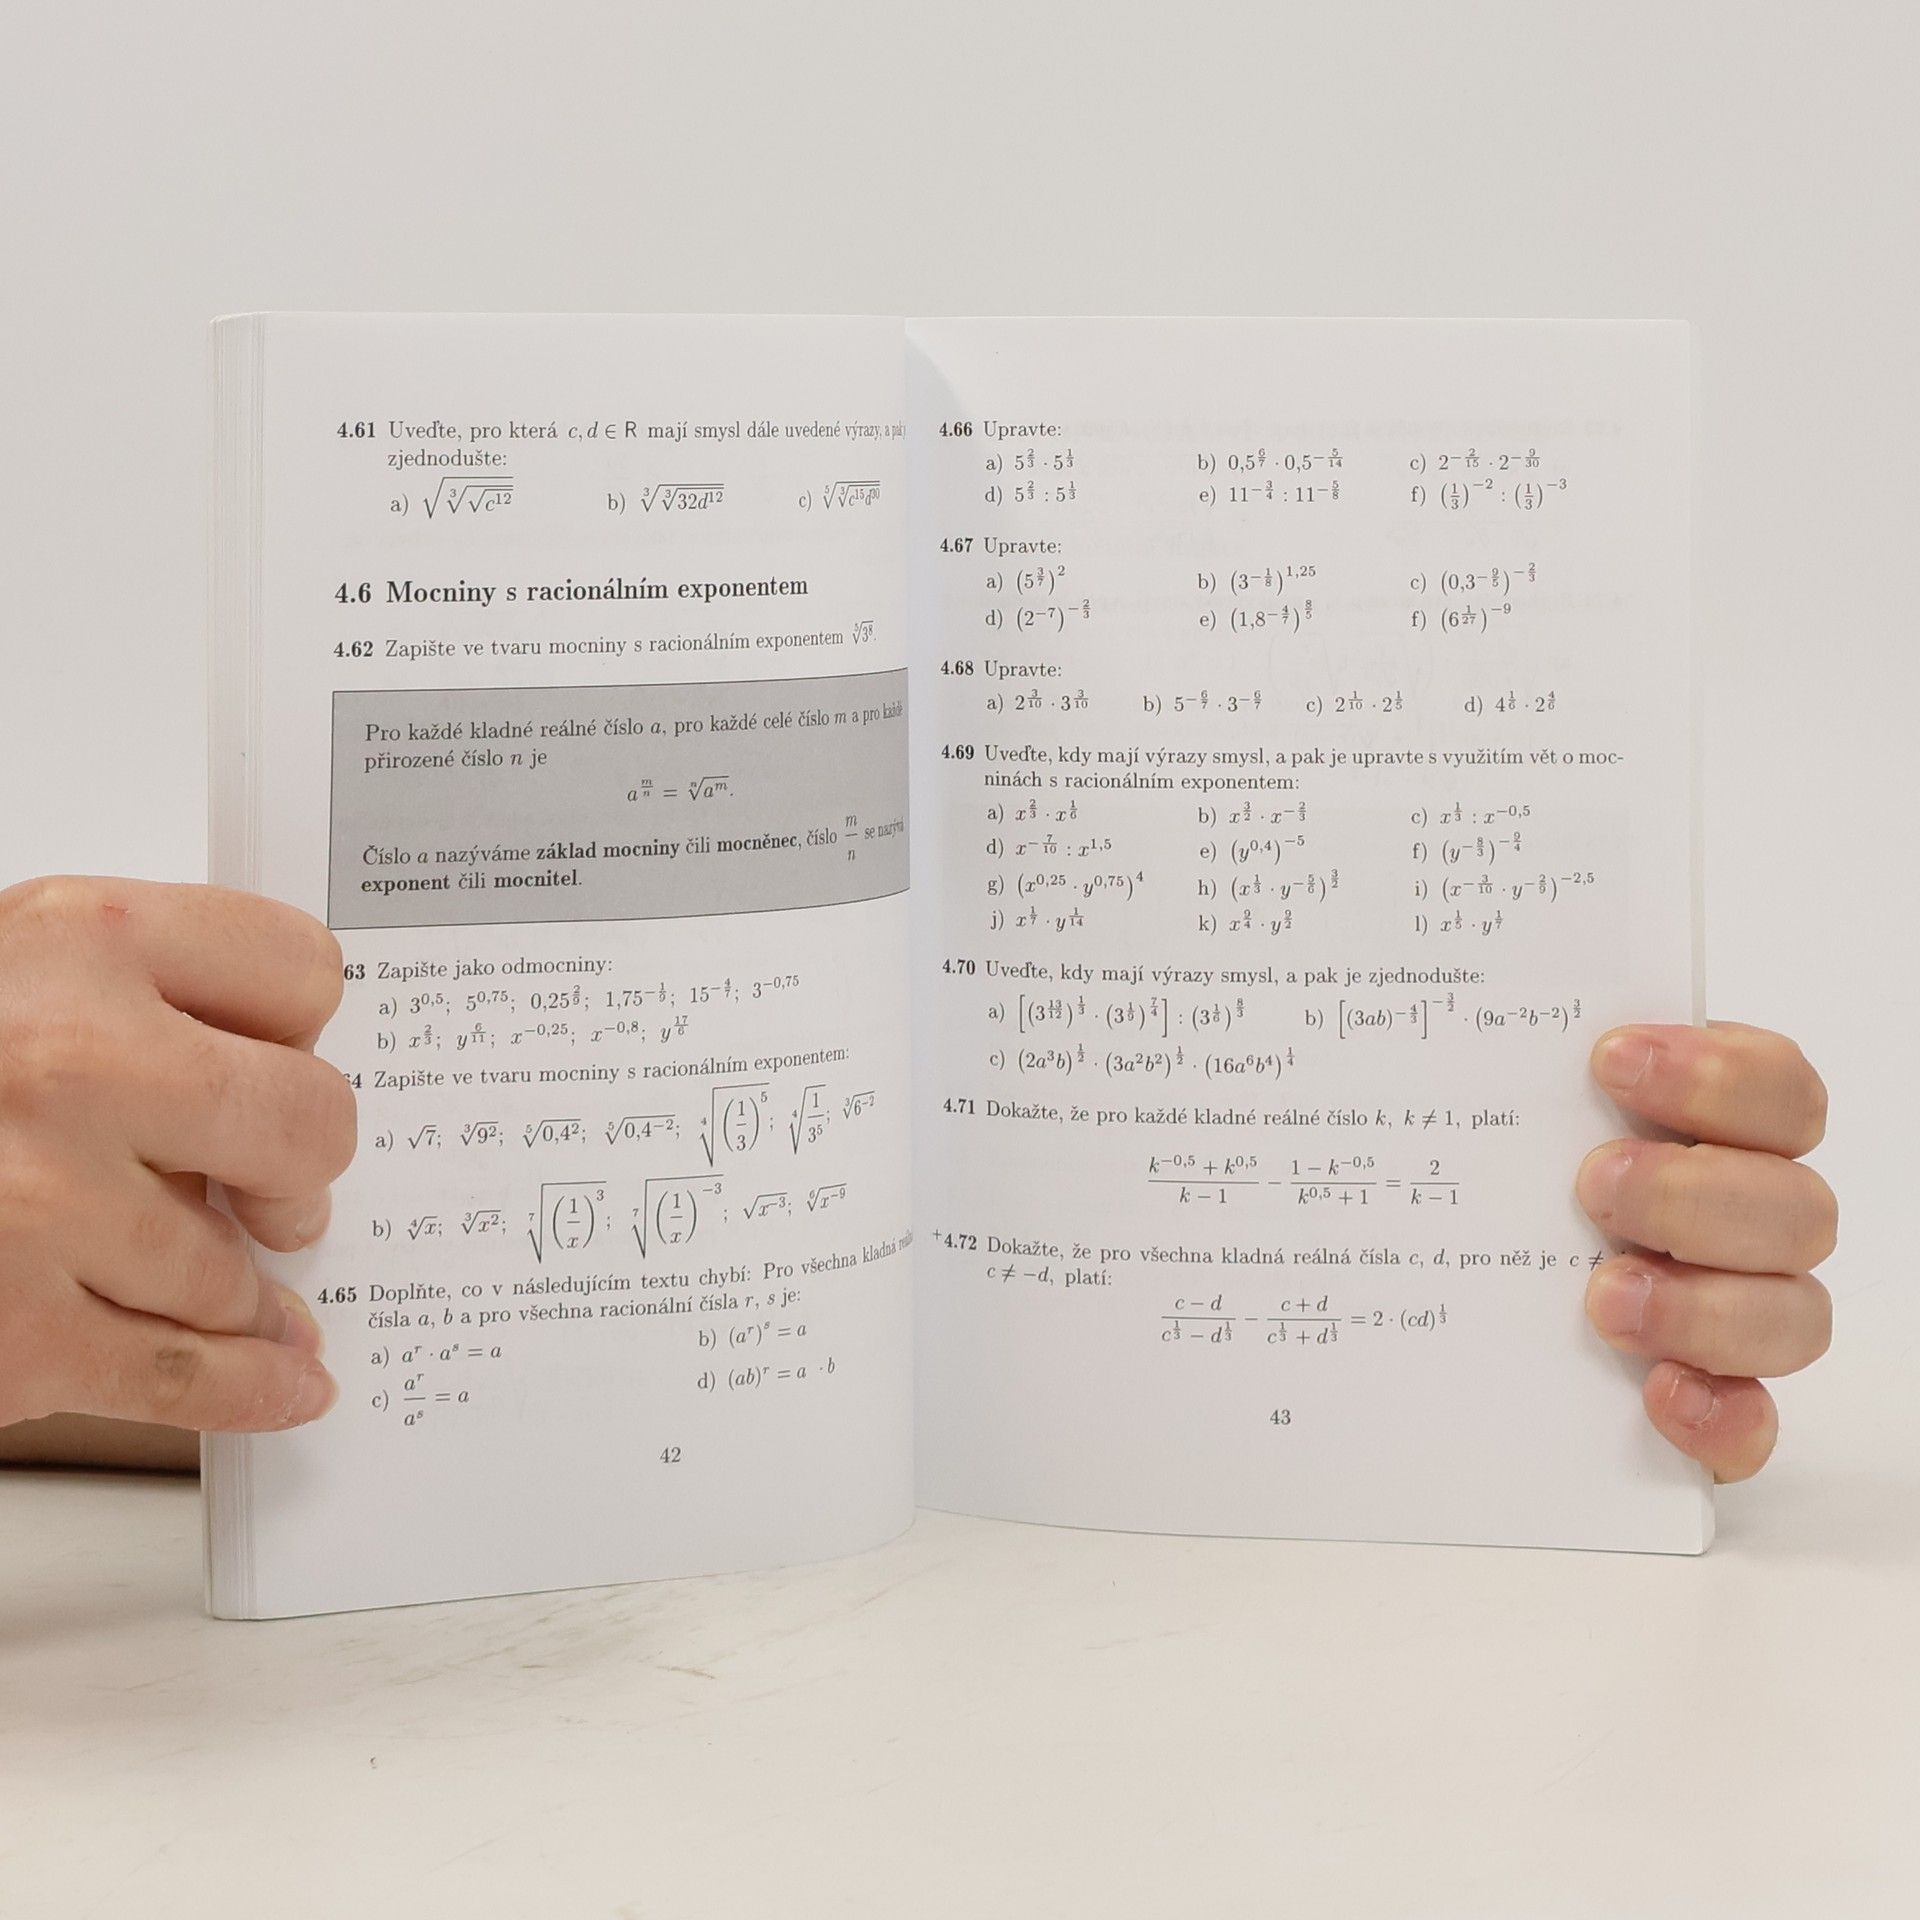 4.61 Uveďte, pro která c, d ∈ R mají smysl dále uvedené výrazy, a pak
zjednodušte:
a) √(∛(√(c¹²))) b) ∛(∛(32d¹²)) c) ⁵√(∛(c¹⁵d³⁰))
4.6 Mocniny s racionálním exponentem
4.62 Zapište ve tvaru mocniny s racionálním exponentem ⁵√(3⁸).
Pro každé kladné reálné číslo a, pro každé celé číslo m a pro každé
přirozené číslo n je
a^(m/n) = ⁿ√(a^m).
Číslo a nazýváme základ mocniny čili mocněnec, číslo m/n se nazývá
exponent čili mocnitel.
63 Zapište jako odmocniny:
a) 3^(0,5); 5^(0,75); 0,25^(2/9); 1,75^(−1/9); 15^(−4/7); 3^(−0,75)
b) x^(2/3); y^(6/11); x^(−0,25); x^(−0,8); y^(17/6)
4 Zapište ve tvaru mocniny s racionálním exponentem:
a) √7; ∛(9²); ⁵√(0,4²); ⁵√(0,4^(−2)); ⁴√((1/3)⁵); ⁴√(1/3⁵); ∛(6^(−2))
b) ⁴√x; ∛(x²); ⁷√((1/x)³); ⁷√((1/x)^(−3)); √(x^(−3)); ⁶√(x^(−9))
4.65 Doplňte, co v následujícím textu chybí: Pro všechna kladná
čísla a, b a pro všechna racionální čísla r, s je:
a) a^r · a^s = a b) (a^r)^s = a
c) a^r/a^s = a d) (ab)^r = a · b
42
4.66 Upravte:
a) 5^(2/3) · 5^(1/3) b) 0,5^(6/7) · 0,5^(−5/14) c) 2^(−2/15) · 2^(−9/30)
d) 5^(2/3) : 5^(1/3) e) 11^(−3/4) : 11^(−5/8) f) (1/3)^(−2) : (1/3)^(−3)
4.67 Upravte:
a) (5^(3/7))² b) (3^(−1/8))^(1,25) c) (0,3^(−9/5))^(−2/3)
d) (2^(−7))^(−2/3) e) (1,8^(−4/7))^(8/5) f) (6^(1/27))^(−9)
4.68 Upravte:
a) 2^(3/10) · 3^(3/10) b) 5^(−6/7) · 3^(−6/7) c) 2^(1/10) · 2^(1/5) d) 4^(1/6) · 2^(4/6)
4.69 Uveďte, kdy mají výrazy smysl, a pak je upravte s využitím vět o moc-
ninách s racionálním exponentem:
a) x^(2/3) · x^(1/6) b) x^(3/2) · x^(−2/3) c) x^(1/3) : x^(−0,5)
d) x^(−7/10) : x^(1,5) e) (y^(0,4))^(−5) f) (y^(−8/3))^(−9/4)
g) (x^(0,25) · y^(0,75))⁴ h) (x^(1/3) · y^(−5/6))^(3/2) i) (x^(−3/10) · y^(−2/9))^(−2,5)
j) x^(1/7) · y^(1/14) k) x^(9/4) · y^(9/2) l) x^(1/5) · y^(1/7)
4.70 Uveďte, kdy mají výrazy smysl, a pak je zjednodušte:
a) [(3^(13/12))^(1/3) · (3^(1/9))^(7/4)] : (3^(1/6))^(8/3) b) [(3ab)^(−4/3)]^(−3/2) · (9a^(−2)b^(−2))^(3/2)
c) (2a³b)^(1/2) · (3a²b²)^(1/2) · (16a⁶b⁴)^(1/4)
4.71 Dokažte, že pro každé kladné reálné číslo k, k ≠ 1, platí:
(k^(−0,5) + k^(0,5))/(k − 1) − (1 − k^(−0,5))/(k^(0,5) + 1) = 2/(k − 1)
+4.72 Dokažte, že pro všechna kladná reálná čísla c, d, pro něž je c ≠
c ≠ −d, platí:
(c − d)/(c^(1/3) − d^(1/3)) − (c + d)/(c^(1/3) + d^(1/3)) = 2 · (cd)^(1/3)
43